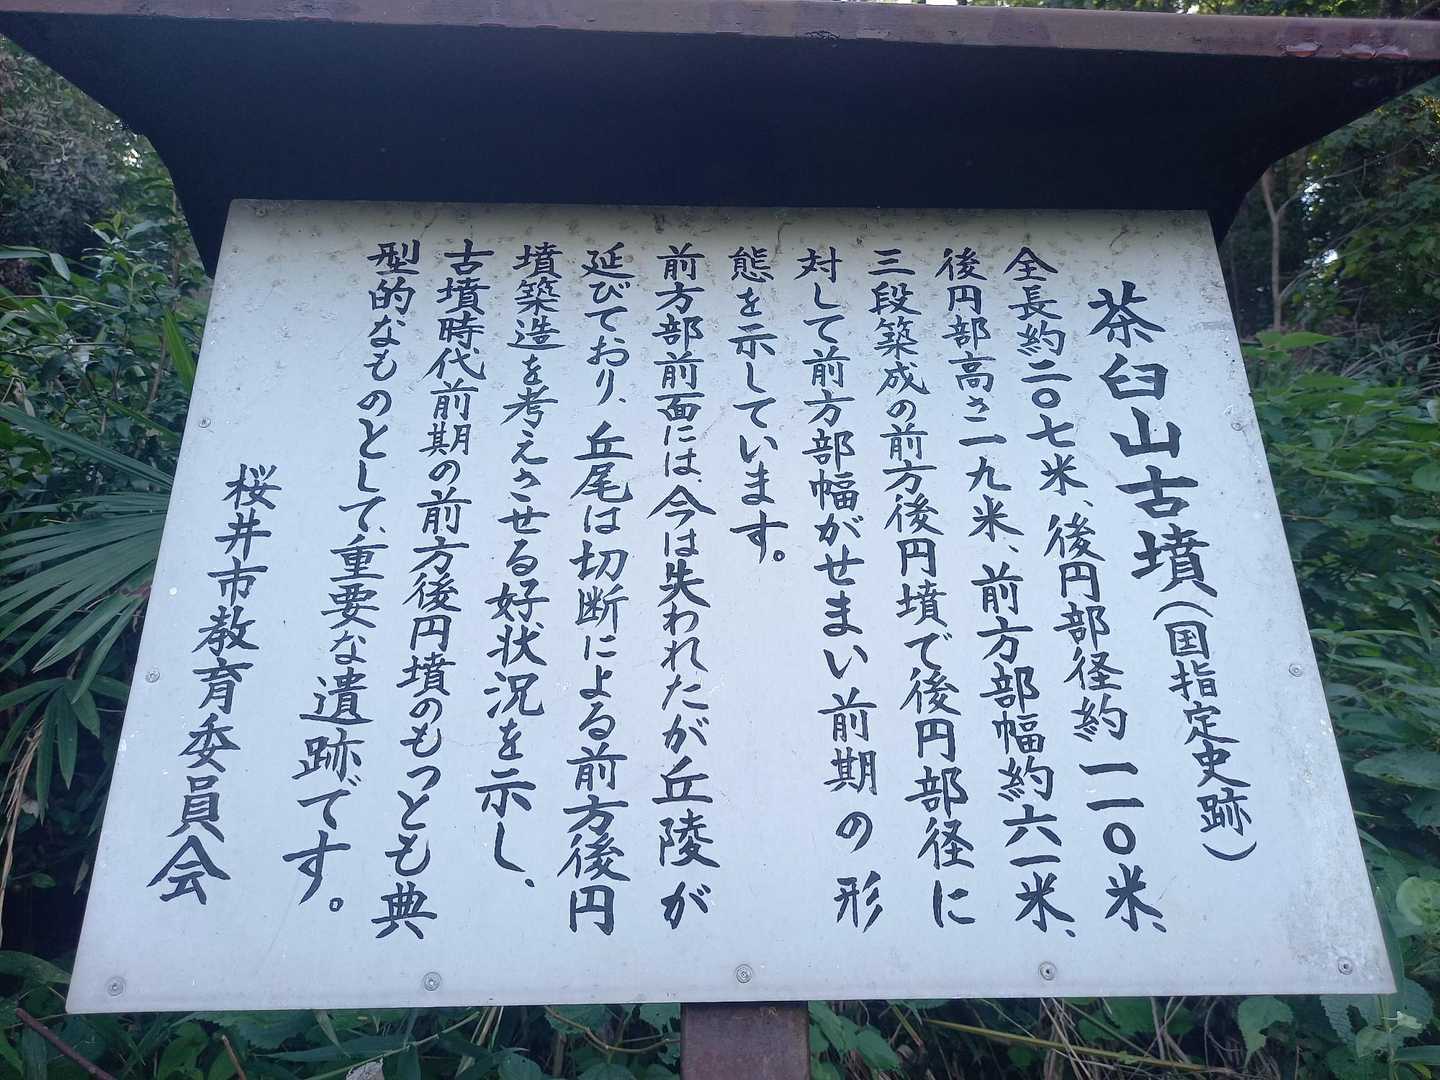 茶臼山古墳(国指定史跡)
全長約二〇七米、後円部径約一一〇米、
後円部高さ一九米、前方部幅約六一米、
三段築成の前方後円墳で後円部径に
対して前方部幅がせまい前期の形
態を示しています。
前方部前面には、今は失われたが丘陵が
延びており、丘尾は切断による前方後円
墳築造を考えさせる好状況を示し、
古墳時代前期の前方後円墳のもつとも典
型的なものとして、重要な遺跡です。
桜井市教育委員会